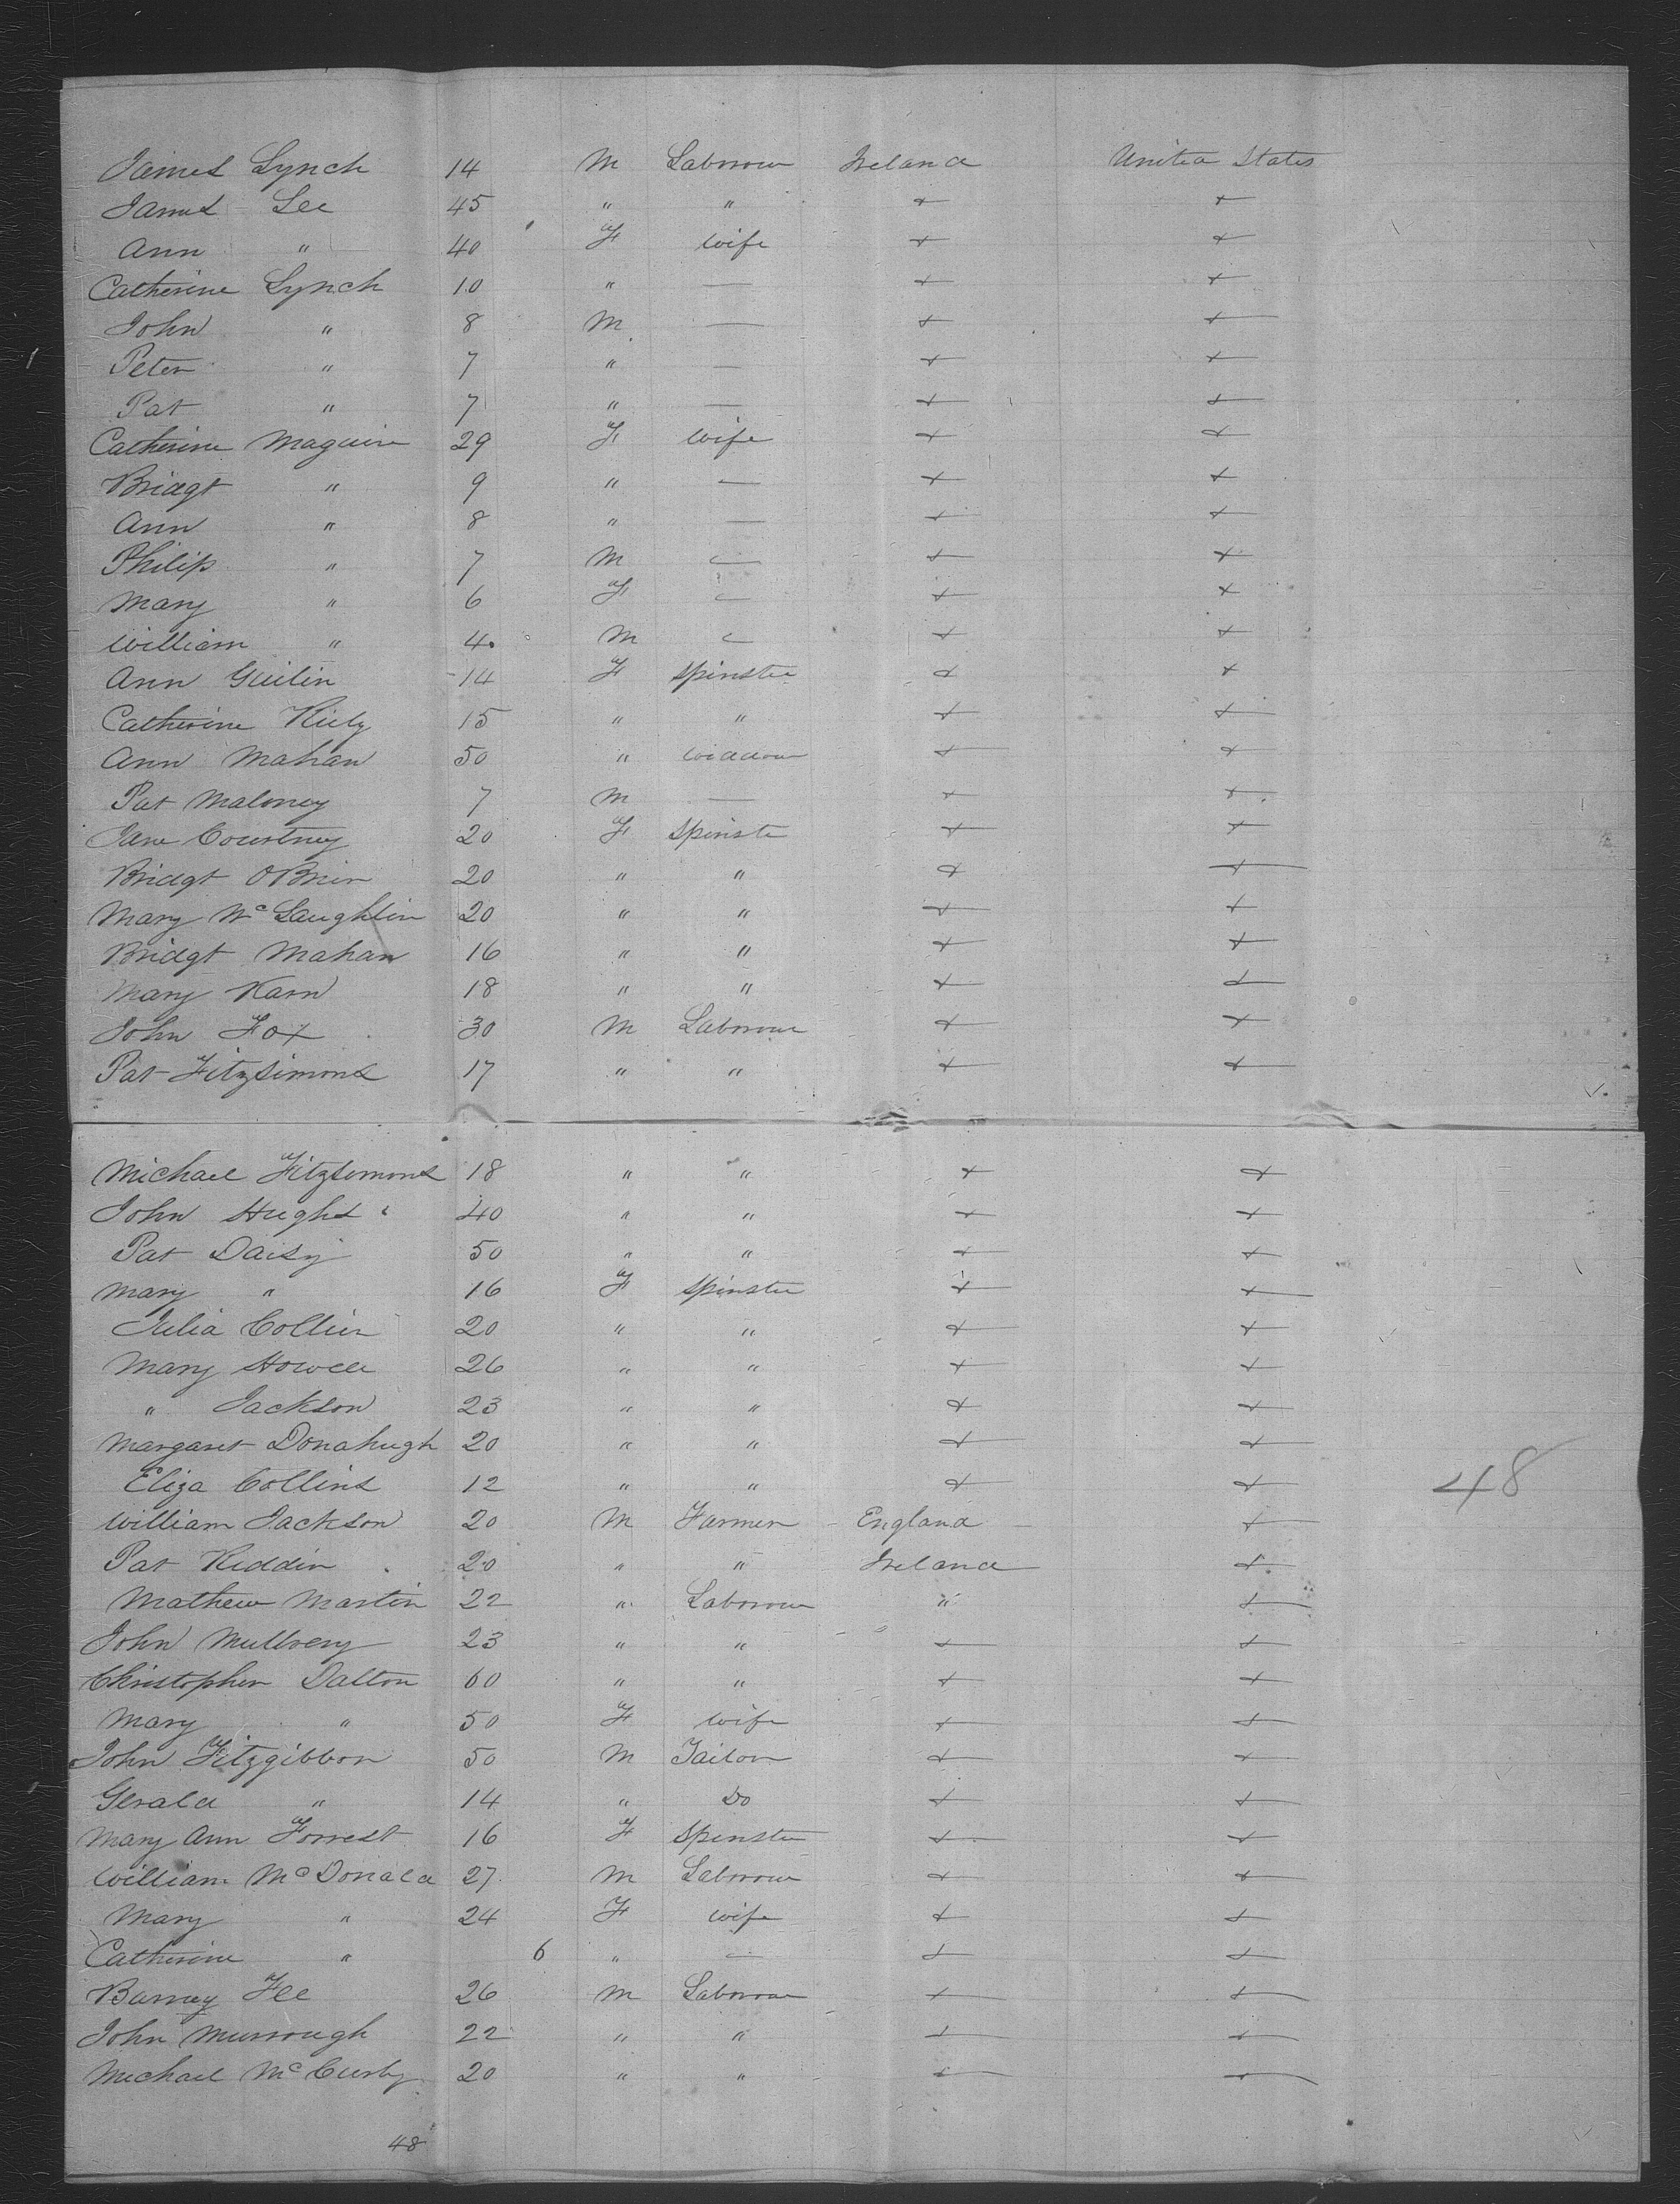 James Lynch 14 M Labrour Ireland United States
James Lee 45 " " + +
Ann " 40 F wife + +
Catherine Lynch 10 " — + +
John " 8 M — + +
Peter " 7 " — + +
Pat " 7 " — + +
Catherine Maguire 29 F wife + +
Bridgt " 9 " — + +
Ann " 8 " — + +
Philip " 7 M — + +
Mary " 6 F — + +
William " 4 M — + +
Ann 14 F Spinster + +
Catherine 15 " " + +
Ann Mahan 50 " widdow + +
Pat Maloney 7 M — + +
Jane Courtney 20 F Spinste + +
Bridgt OBrien 20 " " + +
Mary McLaughlin 20 " " + +
Bridgt Mahan 16 " " + +
Mary Karn 18 " " + +
John Fox 30 M Labrour + +
Pat Fitzsimons 17 " " + +
Michael Fitzsimons 18 " " + +
John Hughs 40 " " + +
Pat Daisy 50 " " + +
Mary " 16 F Spinster + +
Julia Collier 20 " " + +
Mary Howell 26 " " + +
" Jackson 23 " " + +
Margaret Donahugh 20 " " + +
Eliza Collins 12 " " + + 48
William Jackson 20 M Farmer England +
Pat Reddin 20 " " Ireland +
Mathew Martin 22 " Labrour " +
John 23 " " + +
Christopher Dalton 60 " " + +
Mary " 50 F wife + +
John Fitzgibbon 50 M Tailor + +
Gerald " 14 " Do + +
Mary Ann Forrest 16 F Spinster + +
William McDonald 27 M Labrour + +
Mary " 24 F wife + +
Catherine " 6 " — + +
Barney Fee 26 M Labrour + +
John Murrough 22 " " + +
Michael 20 " " + +
48